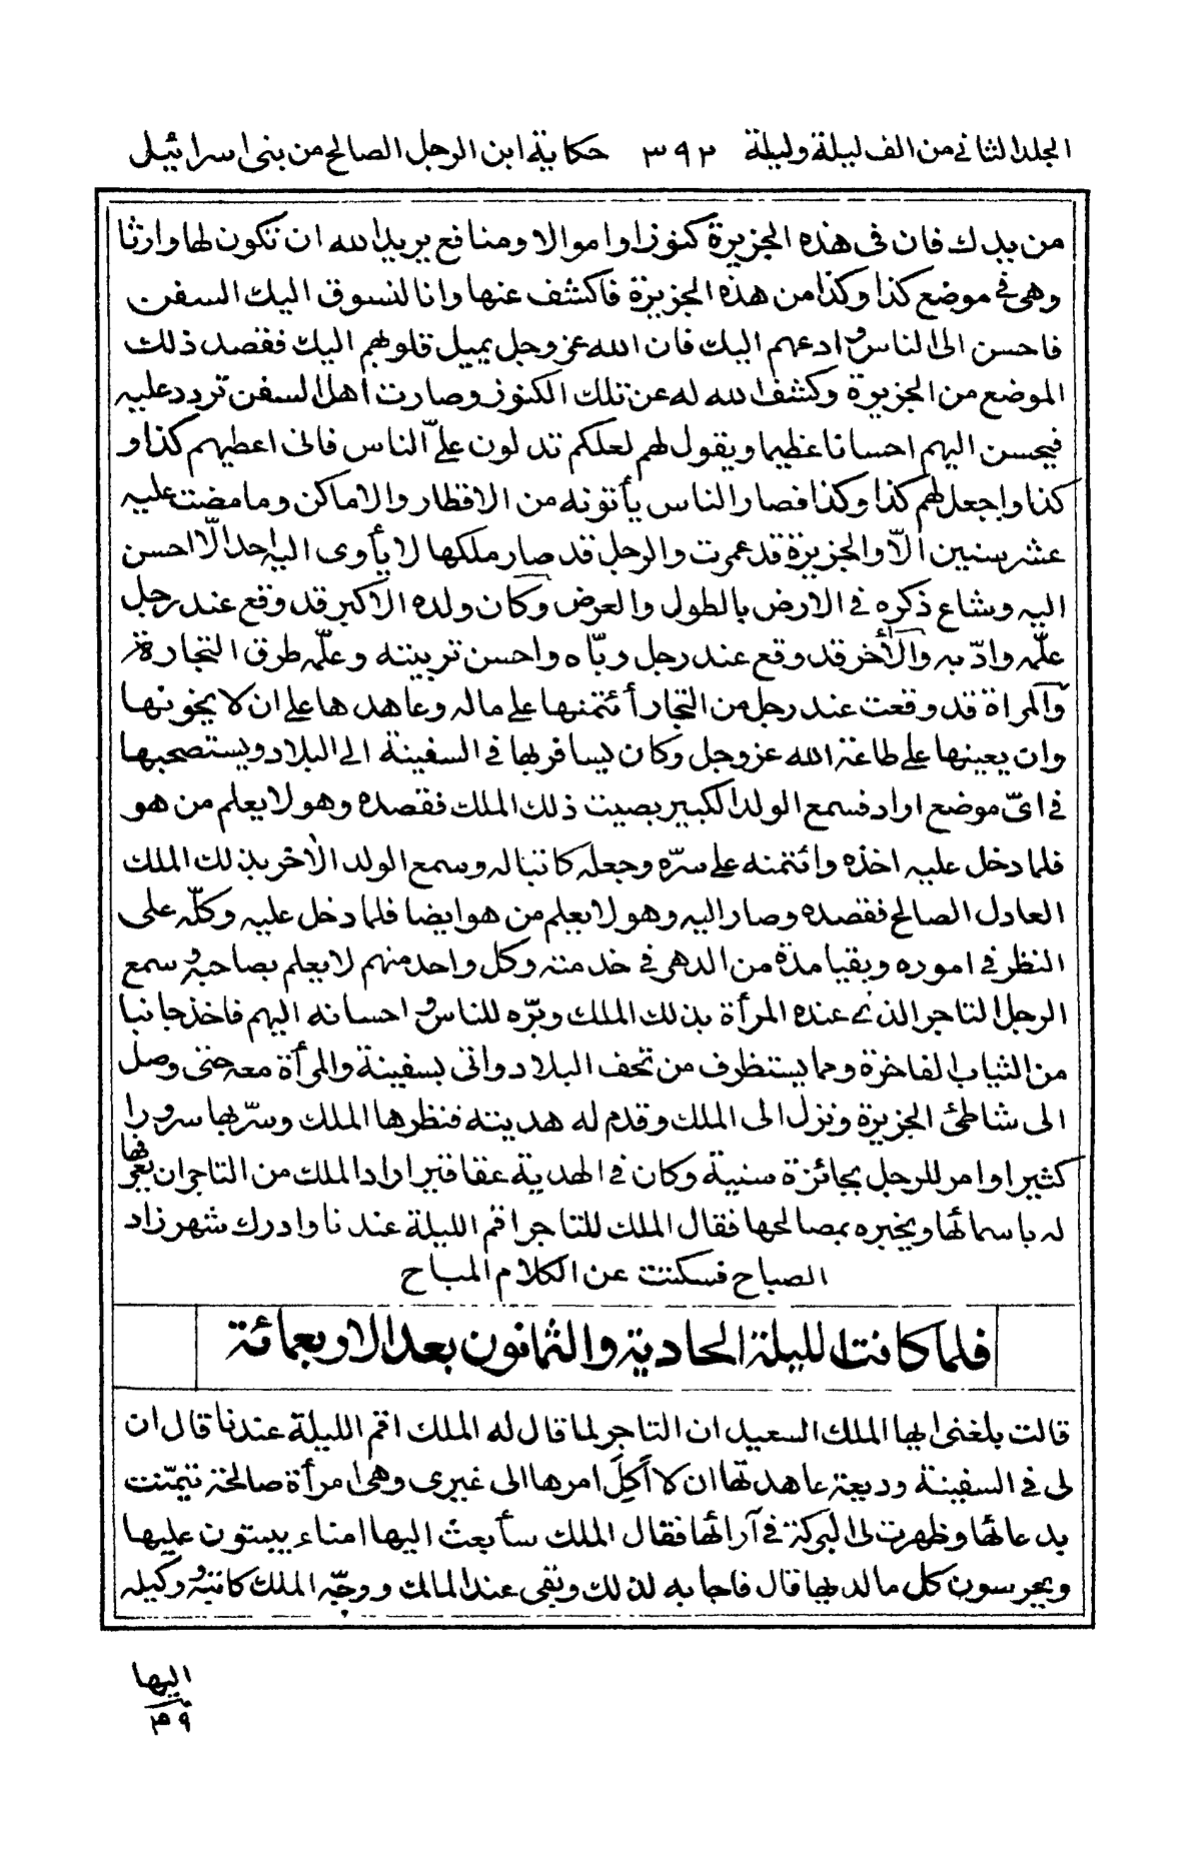 المجلد الثاني من الف ليلة وليلة ٣٩٢ حكاية ابن الرجل الصالح من بنى اسرائيل
من يدك فان فى هذه الجزيرة كنوزا واموالا ومنافع يريد الله ان تكون لها وارثا
وهى فى موضع كذا وكذا من هذه الجزيرة فاكشف عنها وانا لنسوق اليك السفن
فاحسن الى الناس وادعهم اليك فان الله عز وجل يميل قلوبهم اليك فقصد ذلك
الموضع من الجزيرة وكشف الله له عن تلك الكنوز وصارت اهل السفن تردد عليه
فيحسن اليهم احسانا عظيما ويقول لهم لعلكم تدلون علىّ الناس فانى اعطيهم كذا و
كذا واجعل لهم كذا وكذا فصار الناس يأتونه من الاقطار والاماكن وما مضت عليه
عشر سنين الّا والجزيرة قد عمرت والرجل قد صار ملكها لا يأوى اليه احد الّا احسن
اليه وشاع ذكره فى الارض بالطول والعرض وكان ولده الاكبر قد وقع عند رجل
علّمه وادّبه والآخر قد وقع عند رجل وربّاه واحسن تربيته وعلّمه طرق التجارة
والمراة قد وقعت عند رجل من التجار أئتمنها على ماله وعاهدها على ان لا يخونها
وان يعينها على طاعة الله عز وجل وكان يسافر بها فى السفينة الى البلاد ويستصحبها
فى اىّ موضع اراد فسمع الولد الكبير بصيت ذلك الملك فقصده وهو لا يعلم من هو
فلما دخل عليه اخذه وائتمنه على سرّه وجعله كاتبا له وسمع الولد الاخر بذلك الملك
العادل الصالح فقصده وصار اليه وهو لا يعلم من هو ايضا فلما دخل عليه وكلّه على
النظر فى اموره وبقيا مدة من الدهر فى خدمته وكل واحد منهم لا يعلم بصاحبه وسمع
الرجل التاجر الذى عنده المرأة بذلك الملك وبرّه للناس واحسانه اليهم فاخذ جانبا
من الثياب الفاخرة ومما يستظرف من تحف البلاد واتى بسفينة والمرأة معه حتى وصل
الى شاطئ الجزيرة ونزل الى الملك وقدم له هديته فنظرها الملك وسرّ بها سرورا
كثيرا وامر للرجل بجائزة سنية وكان فى الهدية عقاقير اراد الملك من التاجر ان يعرفها
له باسمائها ويخبره بمصالحها فقال الملك للتاجر اقم الليلة عندنا وادرك شهرزاد
الصباح فسكتت عن الكلام المباح
فلما كانت الليلة الحادية والثمانون بعد الاربعمائة
قالت بلغنى ايها الملك السعيد ان التاجر لما قال له الملك اقم الليلة عندنا قال ان
لى فى السفينة وديعة عاهدتها ان لا أَكِلَ امرها الى غيرى وهى امرأة صالحة تيمّنت
بدعائها وظهرت لى البركة فى آرائها فقال الملك سأبعث اليها امناء يبيتون عليها
ويحرسون كل ما لديها قال فاجابه لذلك وبقى عند المالك ووجّه الملك كاتبه ووكيله
اليها